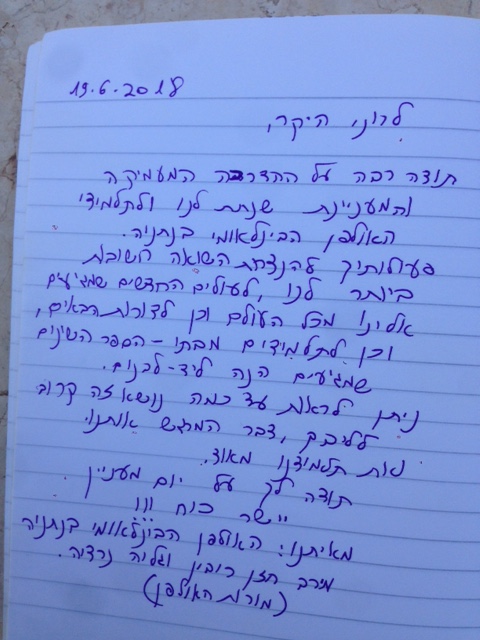 13.6.2018
לרוני היקר,
תודה רבה על ההדרכה המעמיקה
והמעניינת שנתת לנו ולתלמידי
האולפן הבינלאומי בנתניה.
פעולותיך להנצחת השואה חשובות
ביותר לנו, לעולים החדשים שמגיעים
אלינו מכל העולם וכן לדורות הבאים,
וכן לתלמידים מבתי-הספר השונים
שמגיעים הנה ליד-לבנים.
ניתן לראות עד כמה נושא זה קרוב
לליבך, דבר המרגש אותנו
ואת תלמידנו מאוד.
תודה לך על יום מעניין
יישר כוח !!!
מאיתנו: האולפן הבינלאומי בנתניה
מירב חזן רובין וגליה
(מורות האולפן)